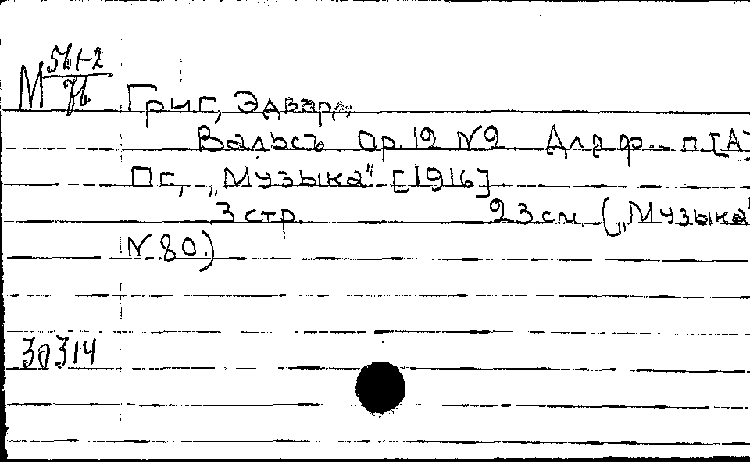 М 561-2
76
Григ, Эдвард.
Вальсъ. Op. 12 № 2. Для ф.-п. [А]
Пг., "Музыка" [1916]
3 стр. 23 см. ("Музыка"
№ 80.)
30314